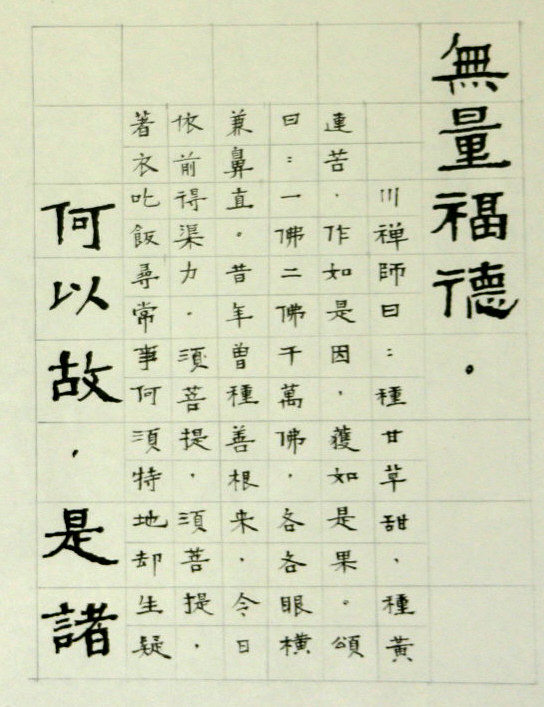 無量福德。
川禪師曰：種甘草甜，種黃
連苦．作如是因，獲如是果。頌
曰：一佛二佛千萬佛，各各眼橫
兼鼻直。昔年曾種善根来，今日
依前得渠力．須菩提，須菩提，
著衣吃飯尋常事何須特地却生疑
何以故，是諸